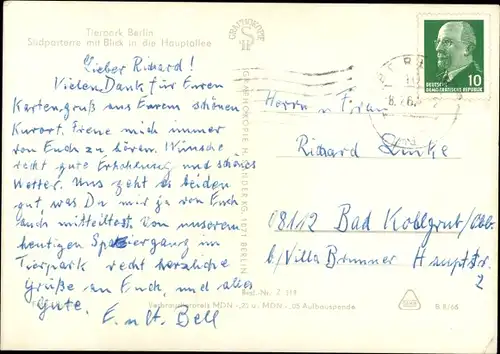 Tierpark Berlin
Südparterre mit Blick in die Hauptallee
Lieber Richard!
Vielen Dank für Euren
Kartengruß aus Eurem schönen
Kurort. Freue mich immer
von Euch zu hören. Wünsche
recht gute Erholung und schönes
Wetter. Uns geht es beiden
gut, was Du mir ja von Euch
auch mitteiltest. Von unserem
heutigen Spaziergang im
Tierpark recht herzliche
Grüße an Euch, und alles
Gute.
E. u. H. Bell
GRAPHOKOPIE H. SANDER KG. 1071 BERLIN
DEUTSCHE
DEMOKRATISCHE REPUBLIK
10
Herrn u Frau
Richard
08112 Bad Kohlgrub/Obb.
b/Villa Brunner Hauptstr
2
Best.-Nr. Z 119
Verbraucherpreis MDN -,20 u. MDN -,05 Aufbauspende
B 8/66